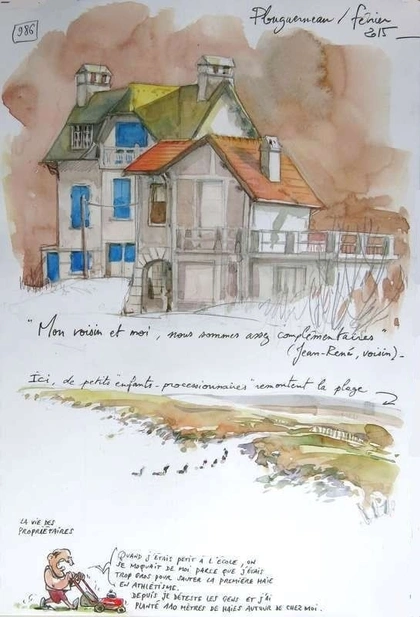 986
Plouguerneau / février
2015
"Mon voisin et moi, nous sommes assez complémentaires"
(Jean-René, voisin).
Ici, de petits "enfants-processionnaires" remontent la plage
LA VIE DES
PROPRIÉTAIRES
QUAND J'ÉTAIS PETIT À L'ÉCOLE, ON
SE MOQUAIT DE MOI PARCE QUE J'ÉTAIS
TROP GROS POUR SAUTER LA PREMIÈRE HAIE
EN ATHLÉTISME.
DEPUIS JE DÉTESTE LES GENS ET J'AI
PLANTÉ 110 MÈTRES DE HAIES AUTOUR DE CHEZ MOI.